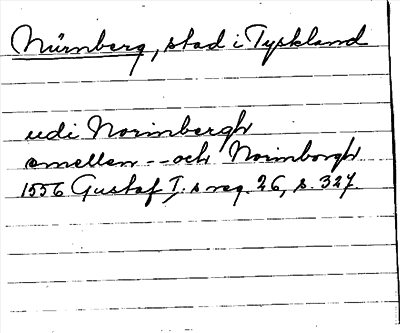 Nürnberg, stad i Tyskland
udi Norinbergh
emellan -- och Norinborgh
1556 Gustaf I:s reg. 26, s. 327.